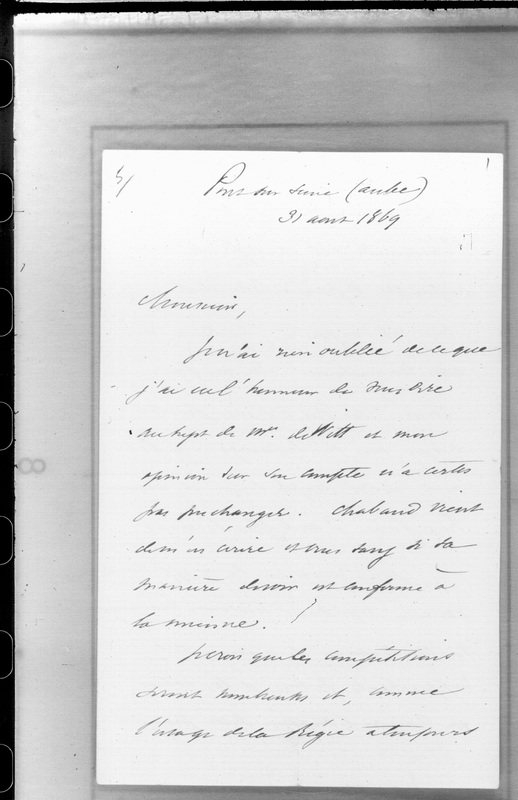 5/ 1
Pont sur Seine (aube)
31 aout 1869
Monsieur,
je n'ai rien oublié de ce que
j'ai eu l'honneur de vous dire
au sujet de Mr. de Witt et mon
opinion sur son compte n'a certes
pas pu changer. Chabaud vient
de m'en écrire et vous savez si sa
manière de voir est conforme à
la mienne.
je crois que les compétitions
seront nombreuses et, comme
l'usage de la Régie a toujours